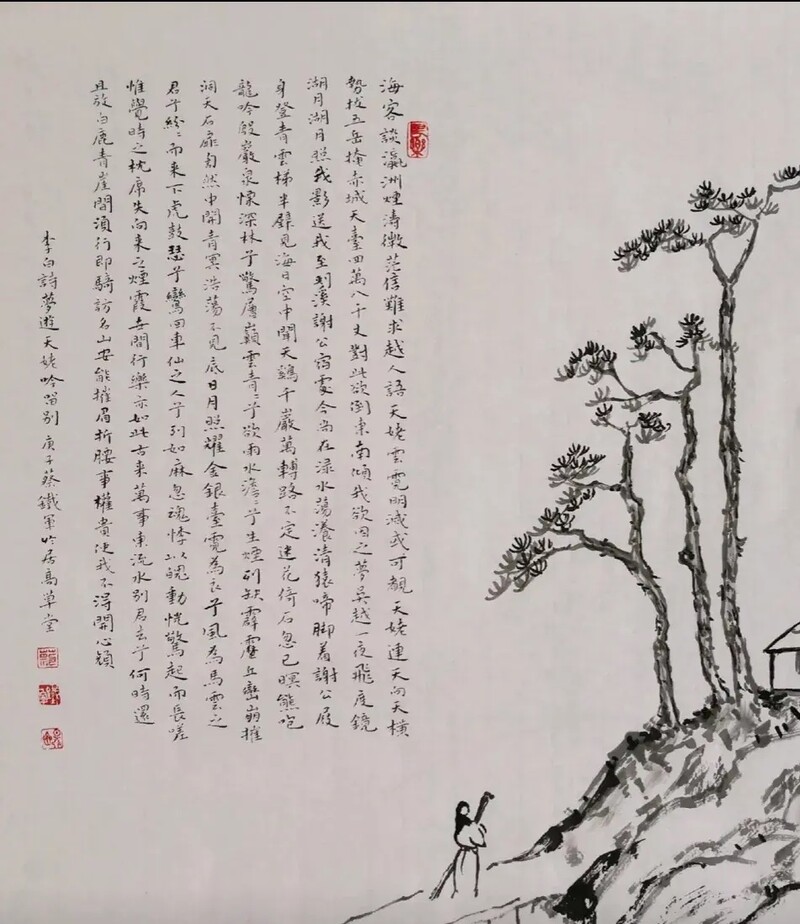 海客談瀛洲煙濤微茫信難求越人語天姥雲霓明滅或可覩天姥連天向天橫
勢拔五岳掩赤城天臺四萬八千丈對此欲倒東南傾我欲因之夢吳越一夜飛度鏡
湖月湖月照我影送我至剡溪謝公宿處今尚在淥水蕩漾清猿啼脚着謝公屐
身登青雲梯半壁見海日空中聞天鷄千巖萬轉路不定迷花倚石忽已暝熊咆
龍吟殷巖泉慄深林兮驚層巔雲青〻兮欲雨水澹〻兮生煙列缺霹靂丘巒崩摧
洞天石扉訇然中開青冥浩蕩不見底日月照耀金銀臺霓為衣兮風為馬雲之
君兮紛〻而來下虎鼓瑟兮鸞回車仙之人兮列如麻忽魂悸以魄動恍驚起而長嗟
惟覺時之枕席失向來之煙霞世間行樂亦如此古來萬事東流水別君去兮何時還
且放白鹿青崖間須行即騎訪名山安能摧眉折腰事權貴使我不得開心顏
李白詩夢遊天姥吟留別 庚子蔡鐵軍於居易草堂